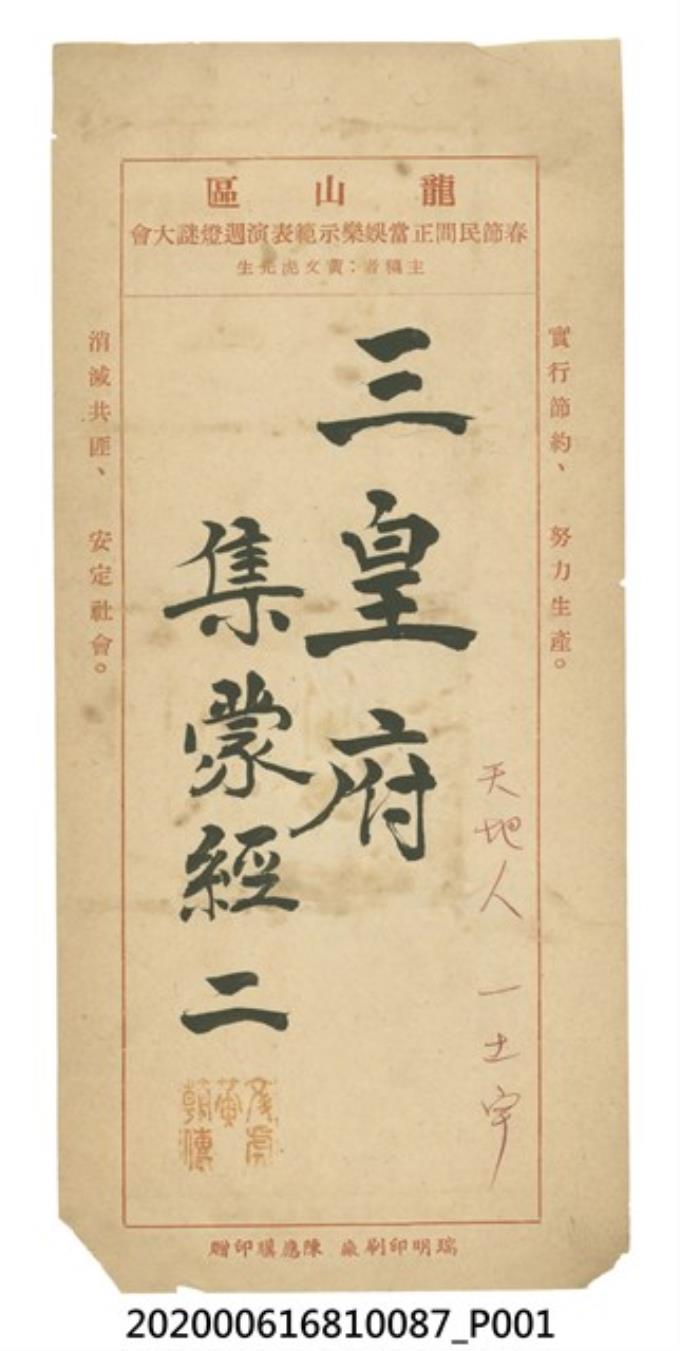 龍山區
春節民間正當娛樂示範表演週燈謎大會
主稿者：黃文虎先生
實行節約、努力生產。
三皇府
集蒙經二
天地人
一土宇
消滅共匪、安定社會。
瑞明印刷廠 陳應璸印贈
202000616810087_P001